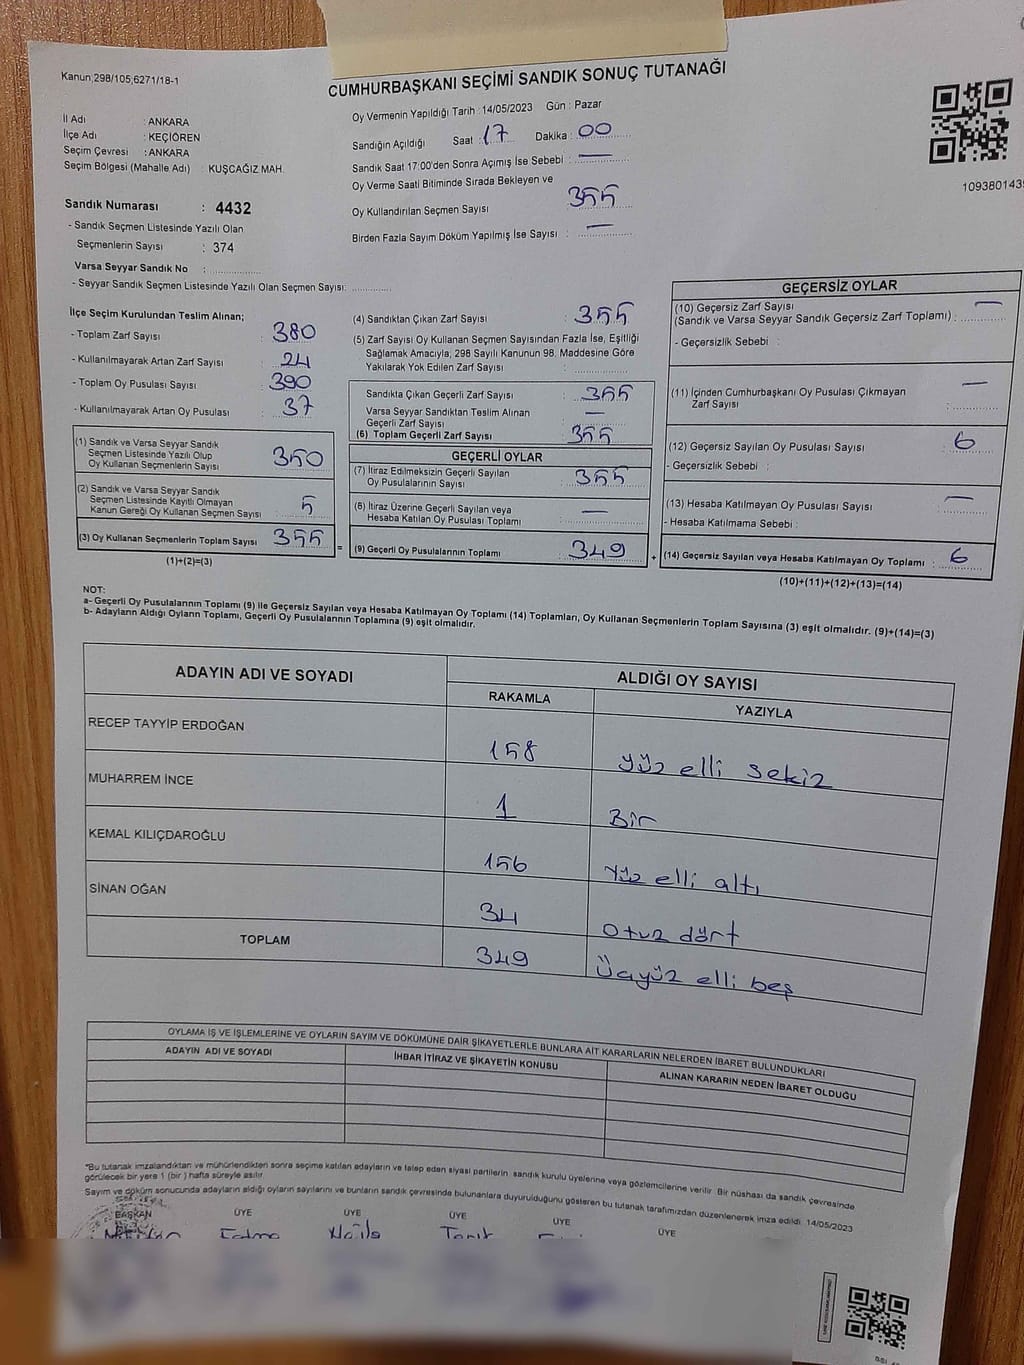 Kanun;298/105;6271/18-1
CUMHURBAŞKANI SEÇİMİ SANDIK SONUÇ TUTANAĞI
İl Adı : ANKARA
İlçe Adı : KEÇİÖREN
Seçim Çevresi : ANKARA
Seçim Bölgesi (Mahalle Adı) : KUŞCAĞIZ MAH.
Sandık Numarası : 4432
- Sandık Seçmen Listesinde Yazılı Olan
Seçmenlerin Sayısı : 374
Varsa Seyyar Sandık No :
- Seyyar Sandık Seçmen Listesinde Yazılı Olan Seçmen Sayısı:
Oy Vermenin Yapıldığı Tarih : 14/05/2023 Gün : Pazar
Sandığın Açıldığı Saat : 17 Dakika : 00
Sandık Saat 17:00'den Sonra Açımış İse Sebebi : —
Oy Verme Saati Bitiminde Sırada Bekleyen ve
Oy Kullandırılan Seçmen Sayısı 355
Birden Fazla Sayım Döküm Yapılmış İse Sayısı : —
İlçe Seçim Kurulundan Teslim Alınan;
- Toplam Zarf Sayısı : 380
- Kullanılmayarak Artan Zarf Sayısı : 24
- Toplam Oy Pusulası Sayısı : 390
- Kullanılmayarak Artan Oy Pusulası : 37
(1) Sandık ve Varsa Seyyar Sandık
Seçmen Listesinde Yazılı Olup
Oy Kullanan Seçmenlerin Sayısı : 350
(2) Sandık ve Varsa Seyyar Sandık
Seçmen Listesinde Kayıtlı Olmayan
Kanun Gereği Oy Kullanan Seçmen Sayısı : 5
(3) Oy Kullanan Seçmenlerin Toplam Sayısı : 355
(1)+(2)=(3)
(4) Sandıktan Çıkan Zarf Sayısı : 355
(5) Zarf Sayısı Oy Kullanan Seçmen Sayısından Fazla İse, Eşitliği
Sağlamak Amacıyla, 298 Sayılı Kanunun 98. Maddesine Göre
Yakılarak Yok Edilen Zarf Sayısı :
Sandıkta Çıkan Geçerli Zarf Sayısı : 355
Varsa Seyyar Sandıktan Teslim Alınan
Geçerli Zarf Sayısı : —
(6) Toplam Geçerli Zarf Sayısı : 355
GEÇERLİ OYLAR
(7) İtiraz Edilmeksizin Geçerli Sayılan
Oy Pusulalarının Sayısı : 355
(8) İtiraz Üzerine Geçerli Sayılan veya
Hesaba Katılan Oy Pusulası Toplamı : —
= (9) Geçerli Oy Pusulalarının Toplamı : 349 +
GEÇERSİZ OYLAR
(10) Geçersiz Zarf Sayısı
(Sandık ve Varsa Seyyar Sandık Geçersiz Zarf Toplamı) : —
- Geçersizlik Sebebi :
(11) İçinden Cumhurbaşkanı Oy Pusulası Çıkmayan
Zarf Sayısı : —
(12) Geçersiz Sayılan Oy Pusulası Sayısı : 6
- Geçersizlik Sebebi :
(13) Hesaba Katılmayan Oy Pusulası Sayısı : —
- Hesaba Katılmama Sebebi :
(14) Geçersiz Sayılan veya Hesaba Katılmayan Oy Toplamı : 6
(10)+(11)+(12)+(13)=(14)
NOT:
a- Geçerli Oy Pusulalarının Toplamı (9) ile Geçersiz Sayılan veya Hesaba Katılmayan Oy Toplamı (14) Toplamları, Oy Kullanan Seçmenlerin Toplam Sayısına (3) eşit olmalıdır. (9)+(14)=(3)
b- Adayların Aldığı Oyların Toplamı, Geçerli Oy Pusulalarının Toplamına (9) eşit olmalıdır.
ADAYIN ADI VE SOYADI ALDIĞI OY SAYISI
RAKAMLA YAZIYLA
RECEP TAYYİP ERDOĞAN 158 Yüz elli sekiz
MUHARREM İNCE 1 Bir
KEMAL KILIÇDAROĞLU 156 Yüz elli altı
SİNAN OĞAN 34 Otuz dört
TOPLAM 349 Üçyüz elli beş
OYLAMA İŞ VE İŞLEMLERİNE VE OYLARIN SAYIM VE DÖKÜMÜNE DAİR ŞİKAYETLERLE BUNLARA AİT KARARLARIN NELERDEN İBARET BULUNDUKLARI
ADAYIN ADI VE SOYADI İHBAR İTİRAZ VE ŞİKAYETİN KONUSU ALINAN KARARIN NEDEN İBARET OLDUĞU
*Bu tutanak imzalandıktan ve mühürlendikten sonra seçime katılan adayların ve talep eden siyasi partilerin sandık kurulu üyelerine veya gözlemcilerine verilir. Bir nüshası da sandık çevresinde
görülecek bir yere 1 (bir) hafta süreyle asılır.
Sayım ve döküm sonucunda adayların aldığı oyların sayılarını ve bunların sandık çevresinde bulunanlara duyurulduğunu gösteren bu tutanak tarafımızdan düzenlenerek imza edildi. 14/05/2023
BAŞKAN ÜYE ÜYE ÜYE ÜYE ÜYE